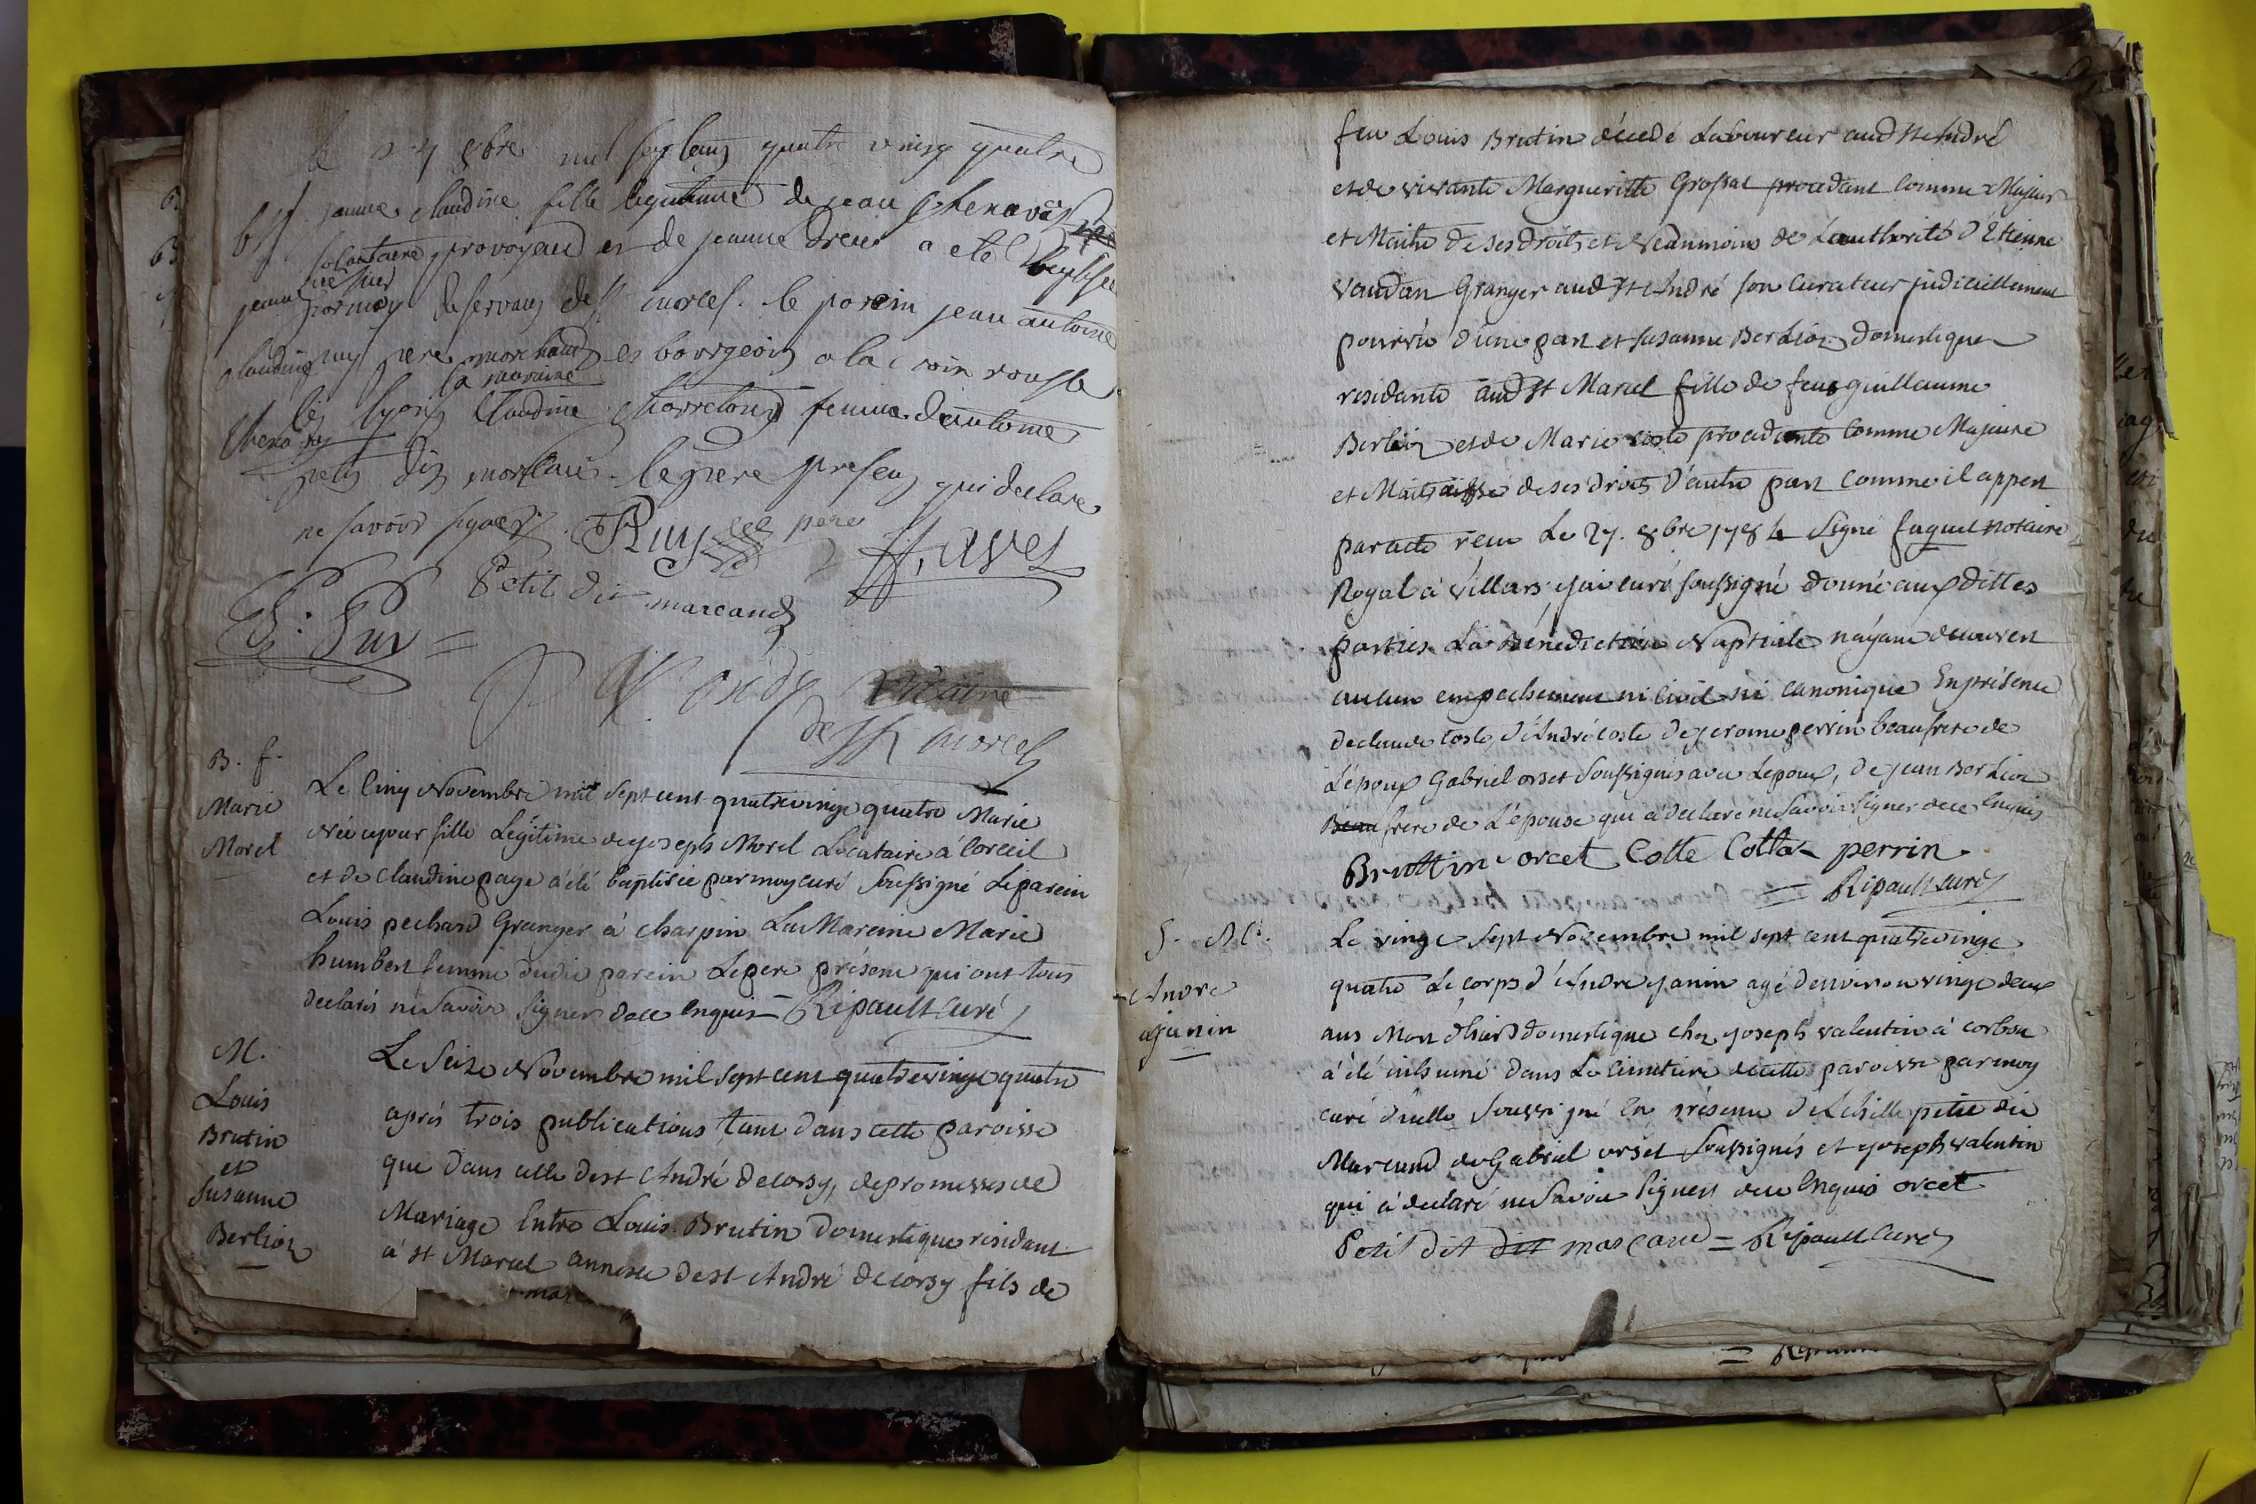 le 27 8bre mil sept cens quatre vingt quatre
b f jeanne claudine fille legitime de jean Chenavas
jeanne claudine Chenavas
locataire provoyeaud et de jeanne Dreus a ete baptisee
par moy desservans de st morcel. le parein jean antoine
puy pere marchand et bourgeois a la croix rousse
la maraine
lès lyon Claudine femme d'antoine
petit dit morcaud. le pere presens qui declare
ne savoir signer. Puy père
Petit dit marcaud
vicaire
de St morcel
B. f.
Marie
Morel
Le Cinq Novembre mil sept cent quatrevingt quatre Marie
Née ce jour fille Légitime de joseph Morel Locataire à Corceil
et de Claudine page a été baptisée par moy curé Soussigné Le parein
Louis pechard Granger à charpin La Mareine Marie
humbert femme dudit parein Le pere présent qui ont tous
declarés ne Savoir Signer de ce Enquis = Ripault curé
M.
Louis
Brutin
et
Susanne
Berlioz
Le Seize Novembre mil sept cent quatrevingt quatre
après trois publications tant dans cette paroisse
que dans celle de st André de corsy, de promesses de
Mariage Entre Louis Brutin Domestique residant
à st Marcel annexe de st André de corsy fils de
feu Louis Brutin décedé Laboureur aud st André
et de vivante Margueritte Grossat procedant comme Majeur
et Maitre de ses droits et Neanmoins de L'authorité d'Etienne
vaudan Granger aud st André son curateur judiciellement
pourvu d'une part et susanne Berlioz Domestique
residante aud st Marcel fille de feus guillaume
Berlioz et de Marie coste procedante comme Majeure
et Maitraisse de ses droits d'autre part comme il appert
par acte reçu Le 27. 8bre 1784 Signé faguet Notaire
Royal à Villars, j'ai curé soussigné donné aux dittes
parties La Bénediction Nuptiale n'ayant decouvert
aucun empechement ni civil ni canonique En présence
de claude coste, d'André coste de jerome perrin beaufrere de
L'époux Gabriel orset Soussignés avec L'epoux, de jean Berlioz
Beau frere de L'épouse qui a declaré ne Savoir Signer de ce Enquis
Bruttin orcet Coste Cotta perrin
= Ripault curé
S. M.
André
janin
Le vingt Sept Novembre mil sept cent quatrevingt
quatre Le corps d'André janin agé d'environ vingt deux
ans Mort d'hier domestique chez joseph valentin à corbou
a été inhumé dans Le Cimetiere de cette paroisse par moy
curé d'icelle Soussigné En présence d'Achille petit dit
Marcaud de Gabriel orset Soussignés et joseph valentin
qui a declaré ne Savoir Signer de ce Enquis orcet
Petit dit dit marcaud = Ripault curé